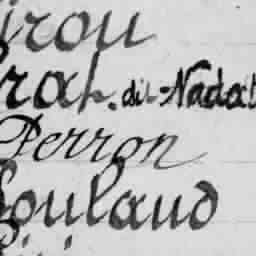 irou
rat. dit Nadal
Perron
Soulaud